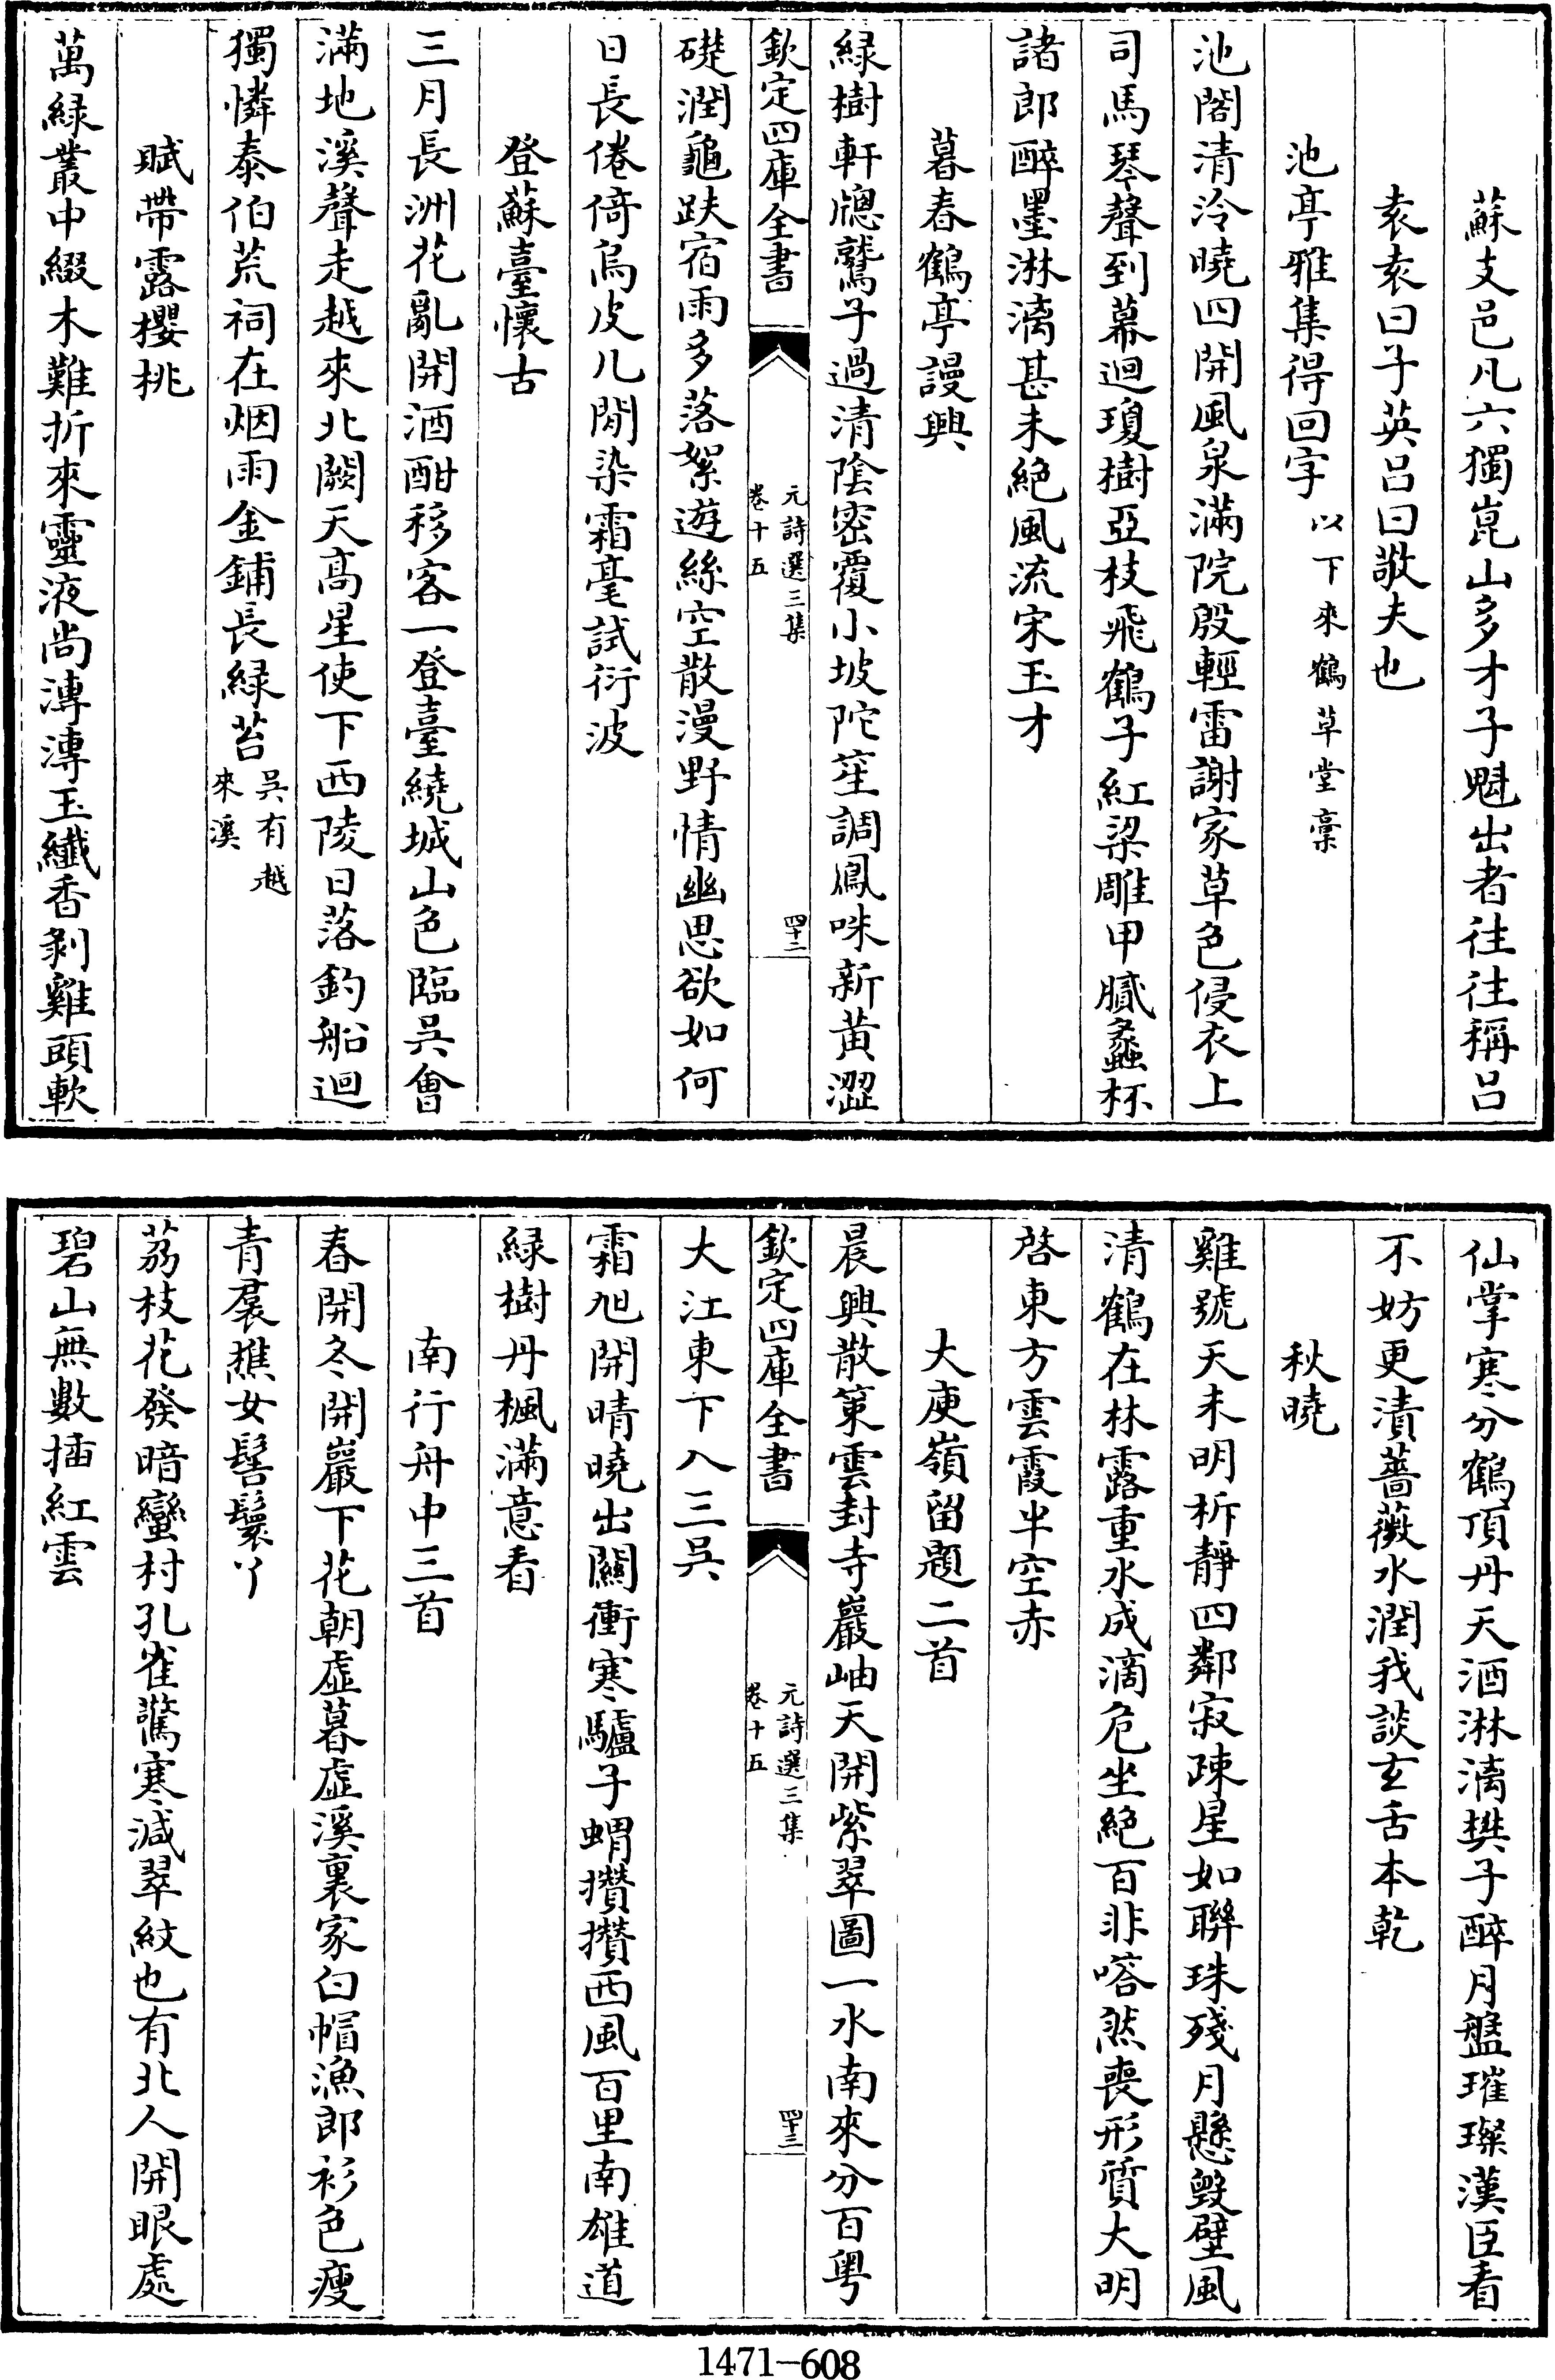 蘇支邑凡六獨崑山多才子魁出者往往稱吕
袁袁曰子英吕曰敬夫也
池亭雅集得回字以下來鶴草堂稾
池閣清泠曉四開風泉滿院殷輕雷謝家草色侵衣上
司馬琴聲到幕迴瓊樹亞枝飛鶴子紅梁雕甲膩蠡杯
諸郎醉墨淋漓甚未絶風流宋玉才
暮春鶴亭謾興
緑樹軒牕鷲子過清陰密覆小坡陀笙調鳳咮新黄澀
欽定四庫全書
元詩選三集
卷十五
四十二
礎潤龜趺宿雨多落絮遊絲空散漫野情幽思欲如何
日長倦倚烏皮几閒染霜毫試衍波
登蘇臺懷古
三月長洲花亂開酒酣移客一登臺繞城山色臨吳會
滿地溪聲走越來北闕天高星使下西陵日落釣船迴
獨憐泰伯荒祠在烟雨金鋪長緑苔吳有越來溪
賦帶露櫻桃
萬緑叢中綴木難折來靈液尚漙漙玉纖香剝雞頭軟
仙掌寒分鶴頂丹天酒淋漓樊子醉月盤璀璨漢臣看
不妨更漬薔薇水潤我談玄舌本乾
秋曉
雞號天未明柝靜四鄰寂疎星如聯珠殘月懸毁壁風
清鶴在林露重水成滴危坐絶百非嗒然喪形質大明
啓東方雲霞半空赤
大庾嶺留題二首
晨興散䇿雲封寺巖岫天開紫翠圖一水南來分百粤
欽定四庫全書
元詩選三集
卷十五
四十三
大江東下入三吳
霜旭開晴曉出關衝寒驢子蝟攢攢西風百里南雄道
緑樹丹楓滿意看
南行舟中三首
春開冬開巖下花朝虚暮虚溪裏家白帽漁郎衫色瘦
青裠樵女髻鬟丫
荔枝花發暗蠻村孔雀驚寒減翠紋也有北人開眼處
碧山無數插紅雲
1471—608